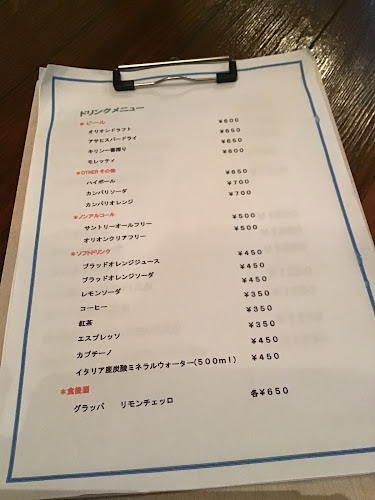 ドリンクメニュー
＊ビール
オリオンドラフト ￥600
アサヒスパードライ ￥650
キリン一番搾り ￥650
モレッティ ￥600
＊OTHER その他
ハイボール ￥650
カンパリソーダ ￥700
カンパリオレンジ ￥700
＊ノンアルコール
サントリーオールフリー ￥500
オリオンクリアフリー ￥500
＊ソフトドリンク
ブラッドオレンジジュース ￥450
ブラッドオレンジソーダ ￥450
レモンソーダ ￥450
コーヒー ￥350
紅茶 ￥350
エスプレッソ ￥350
カプチーノ ￥450
イタリア産炭酸ミネラルウォーター(500ml) ￥450
＊食後酒
グラッパ リモンチェッロ 各￥650